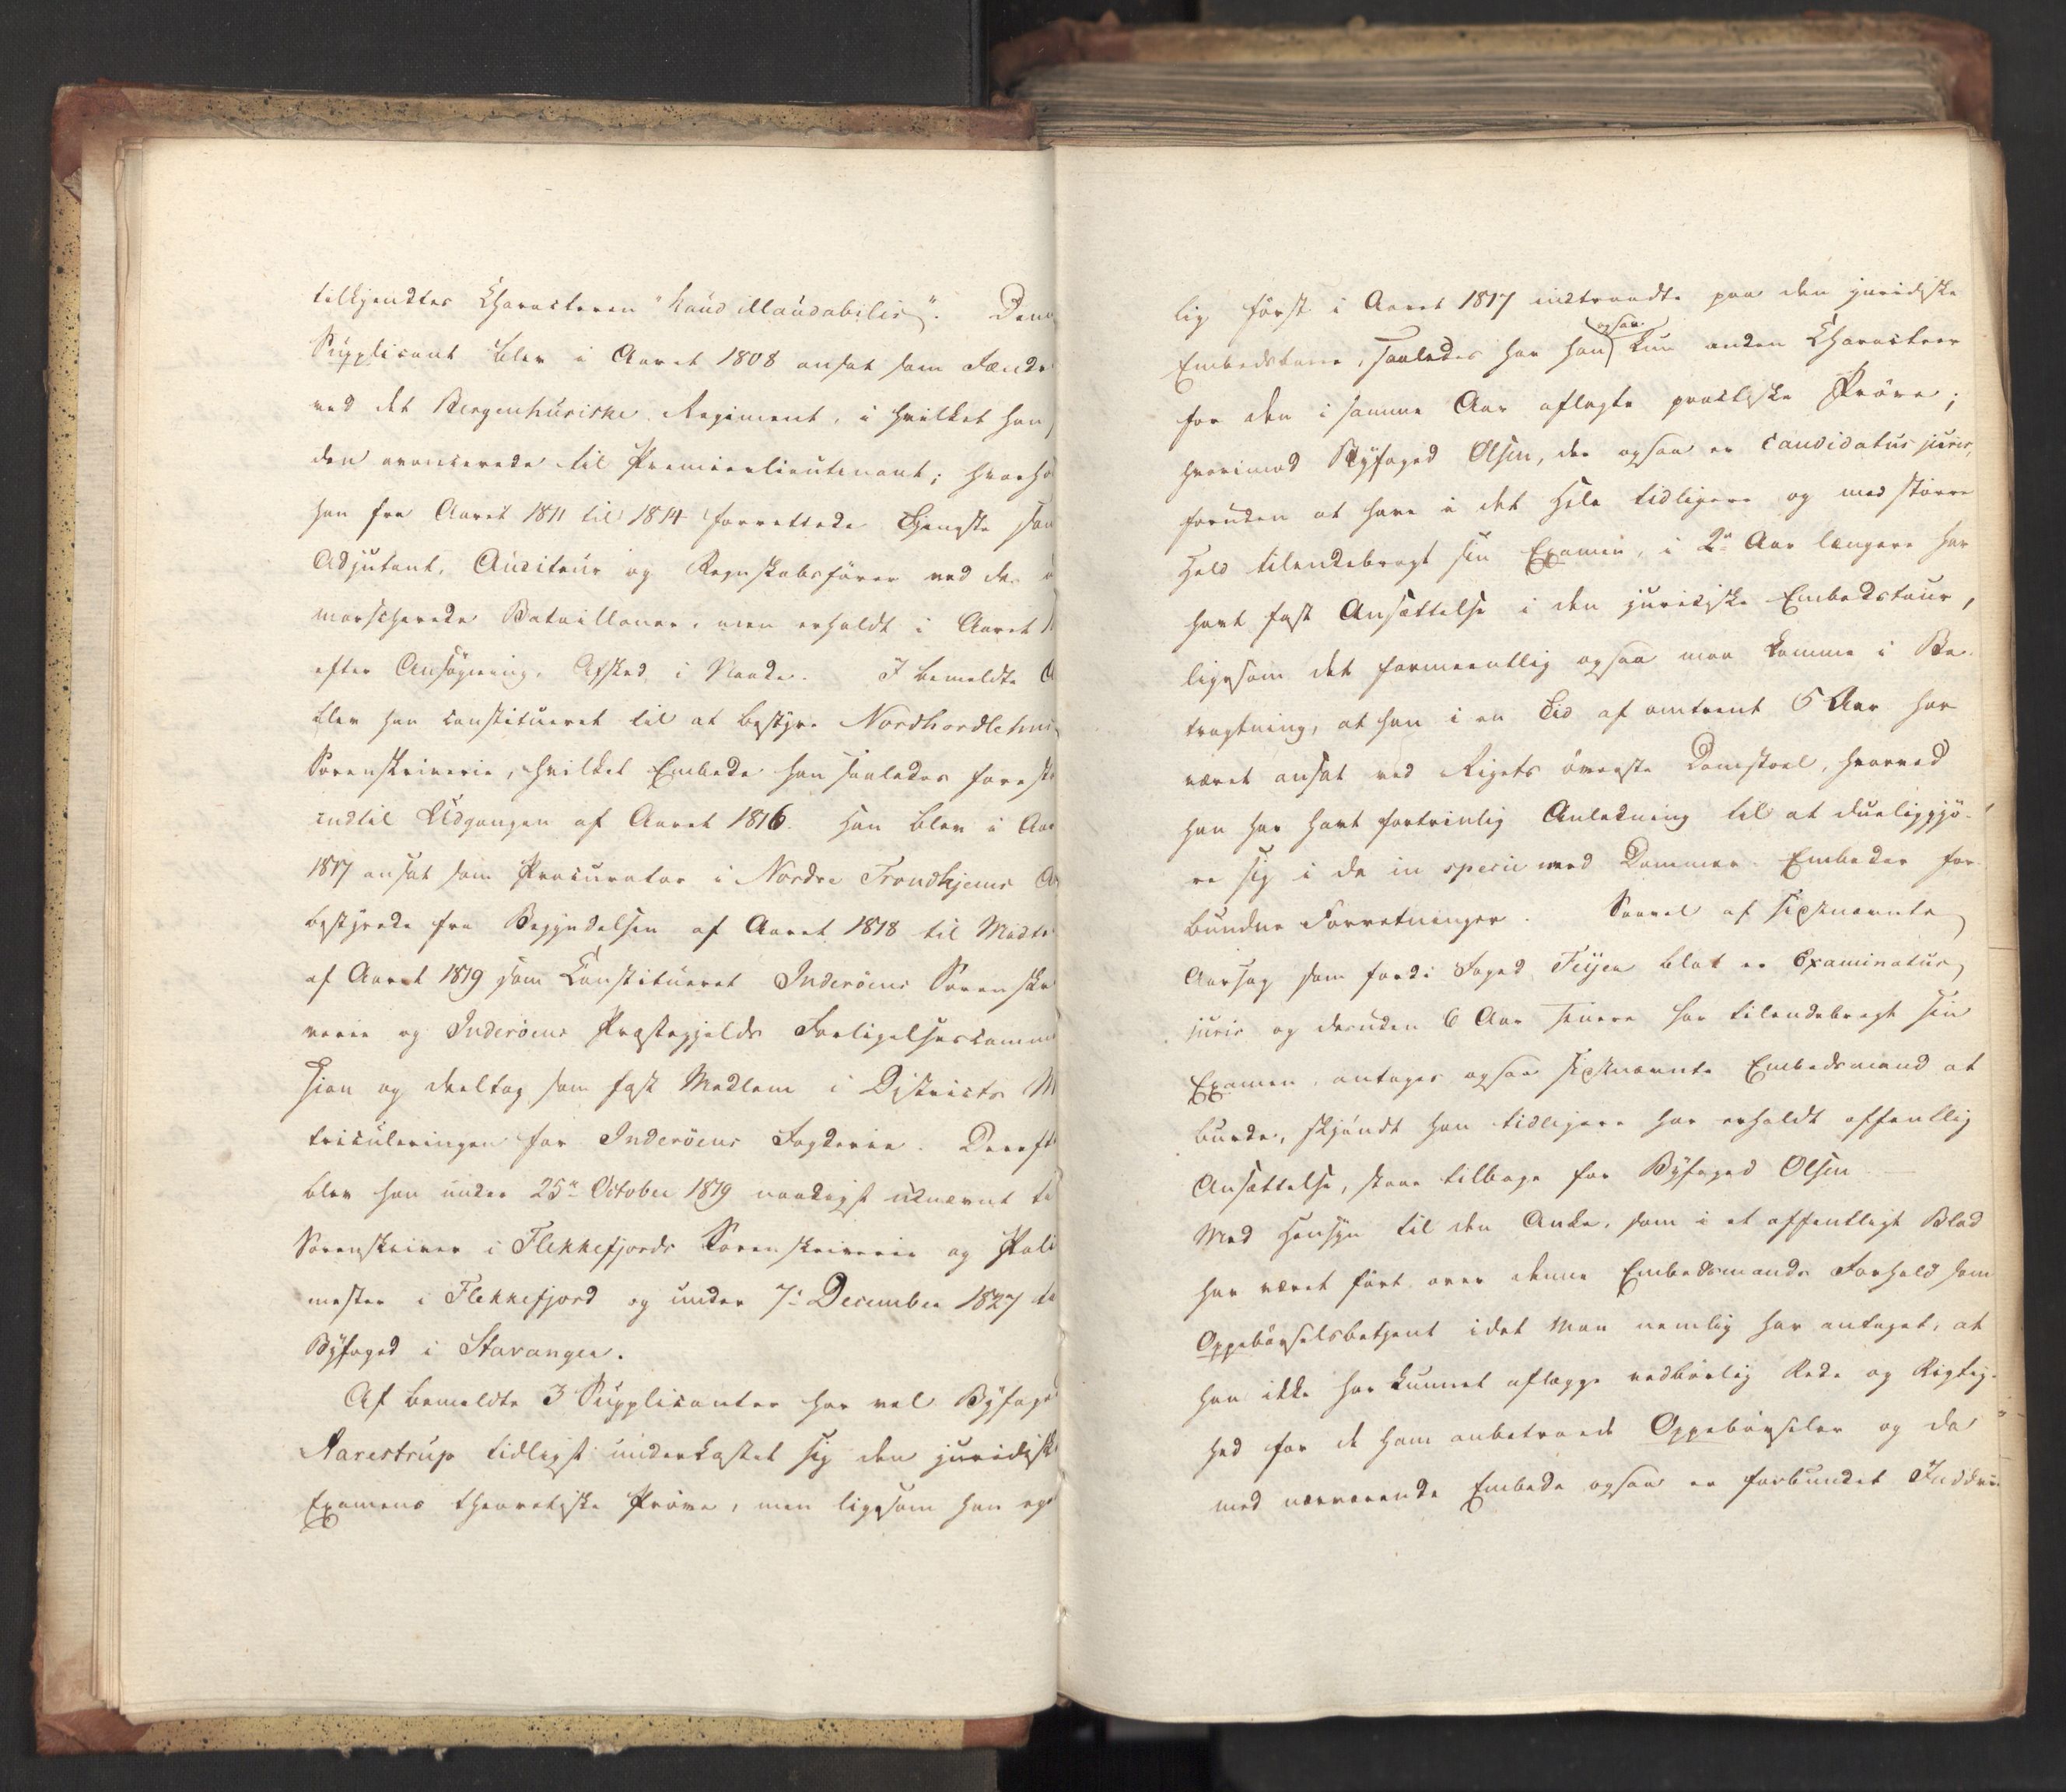 tilkjendtes Characteren "haud illaudabilis". Denne
Supplicant blev i Aaret 1808 ansat som Fændr
ved det Bergenhusiske Regiment, i hvilket han
den avancerede til Premierlieutenant; hvorhos
han fra Aaret 1811 til 1814 forrettede Tjeneste som
Adjutant, Auditeur og Regnskabsfører ved de
marscherede Batailloner, men erholdt i Aaret
efter Ansøgning, Afsked i Naade. I bemeldte A
blev han constitueret til at bestyre Nordhordlehns
Sorenskriverie, hvilket Embede han saaledes forest
indtil Udgangen af Aaret 1816. Han blev i Aar
1817 ansat som Procurator i Nordre Trondhjems A
bestyrede fra Begyndelsen af Aaret 1818 til Midte
af Aaret 1819 som Constitueret Inderöens Sorenskr
verie og Inderöens Præstegjelds Forligelsescommi
sion og deeltog som fast Medlem i Districts M
triculeringen for Inderöens Fogderie. Dereft
blev han under 25de October 1819 naadigst udnævnt ti
Sorenskriver i Flekkefjords Sorenskriverie og Poli
mester i Flekkefjord og under 7de December 1827 ti
Byfoged i Stavanger.
Af bemeldte 3 Supplicanter har vel Byfoged
Aarestrup tidligst underkastet sig den juridisk
Examens theoretiske Prøve, men ligesom han eg
lig først i Aaret 1817 indtraadte paa den juridiske
Embedsbane, saaledes har han også kun anden Characteer
for den i samme Aar aflagte practiske Prøve;
hvorimod Byfoged Olsen, der ogsaa er candidatus juris,
foruden at have i det Hele tidligere og med større
Held tilendebragt sin Examen, i 2de Aar længere har
havt fast Ansættelse i den juridiske Embedstour,
ligesom det formeentlig ogsaa maa komme i Be-
tragtning, at han i en Tid af omtrent 5 Aar har
været ansat ved Rigets øverste Domstoel, hvorved
han har havt fortrinlig Anledning til at dueliggjö-
re sig i de in specie med Dommer-Embeder for-
bundne Forretninger. Saavel af sidstnævnte
Aarsag som fordi Foged Feyer blot er Examinatus
juris og desuden 6 Aar senere har tilendebragt sin
Examen, antages ogsaa sidstnævnte Embedsmand at
burde, skjøndt han tidligere har erholdt offentlig
Ansættelse, staae tilbage for Byfoged Olsen.
Med Hensyn til den Anke, som i et offentligt Blad
har været ført over denne Embedsmands Forhold som
Oppebørselsbetjent idet Man nemlig har antaget, at
han ikke har kunnet aflægge vedbørlig Rede og Rigtig-
hed for de ham anbetroede Oppebørseler og da
med nærværende Embede ogsaa er forbundet Inddri